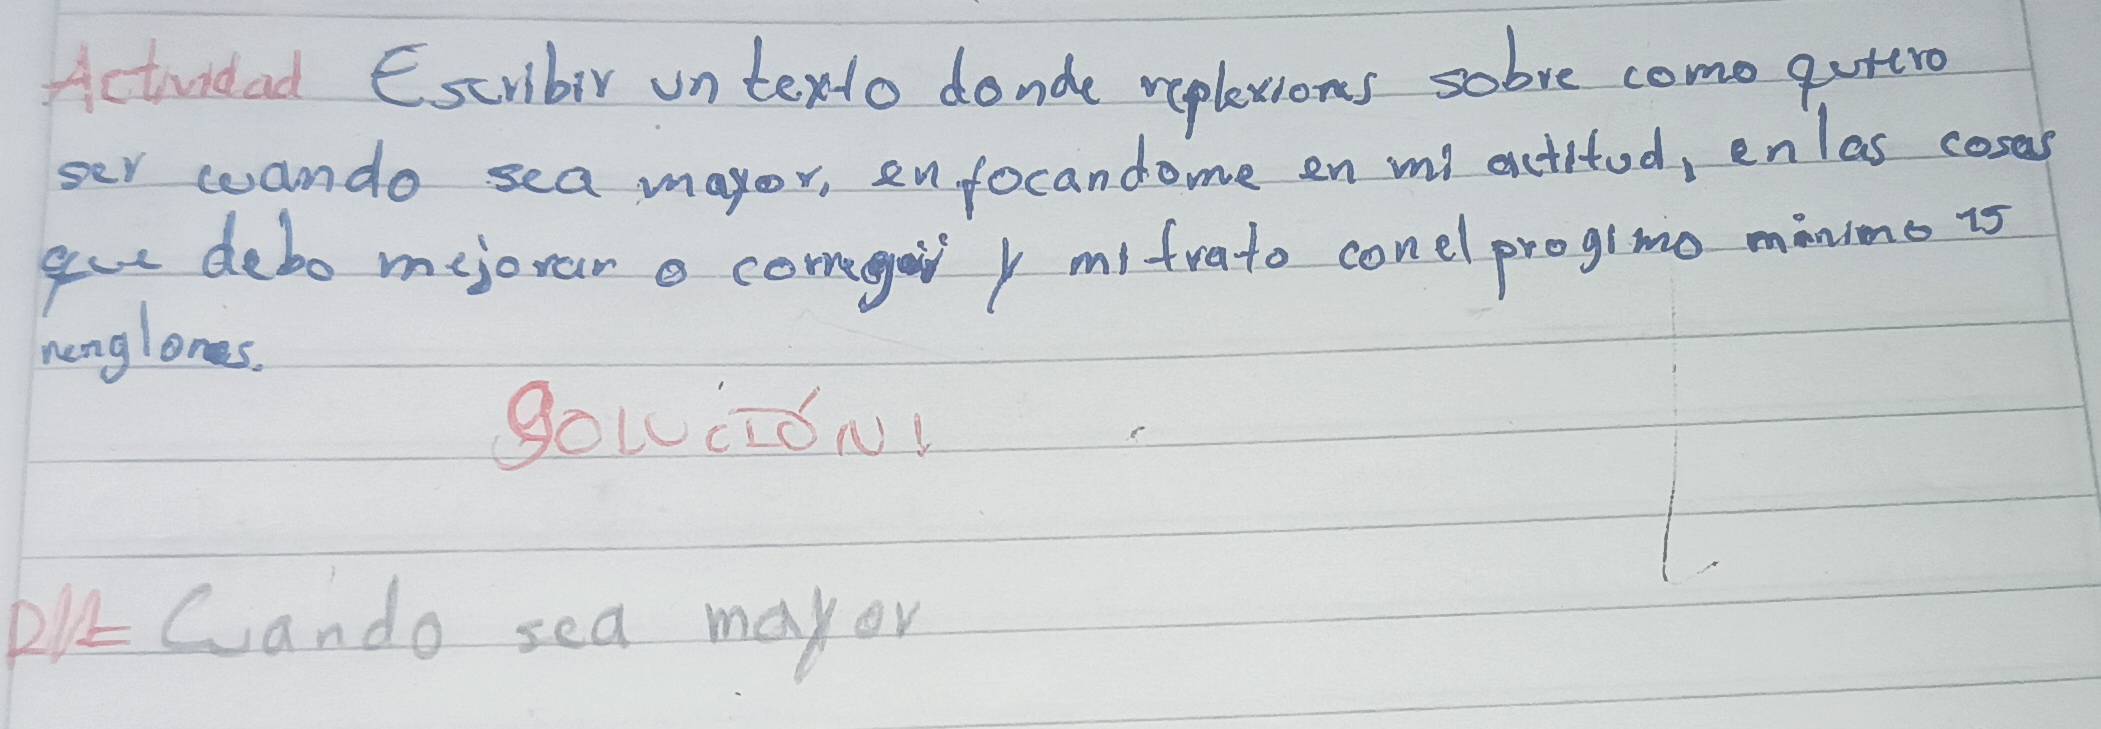 Actividad Escribir un texto donde replexiones sobre como quiero
ser cuando sea mayor, enfocandome en mi actitud, en las cosas
que debo mejorar o corregir y mi trato con el progimo minimo 15
renglones.
SOLUCIÓN!
R//= Cuando sea mayor